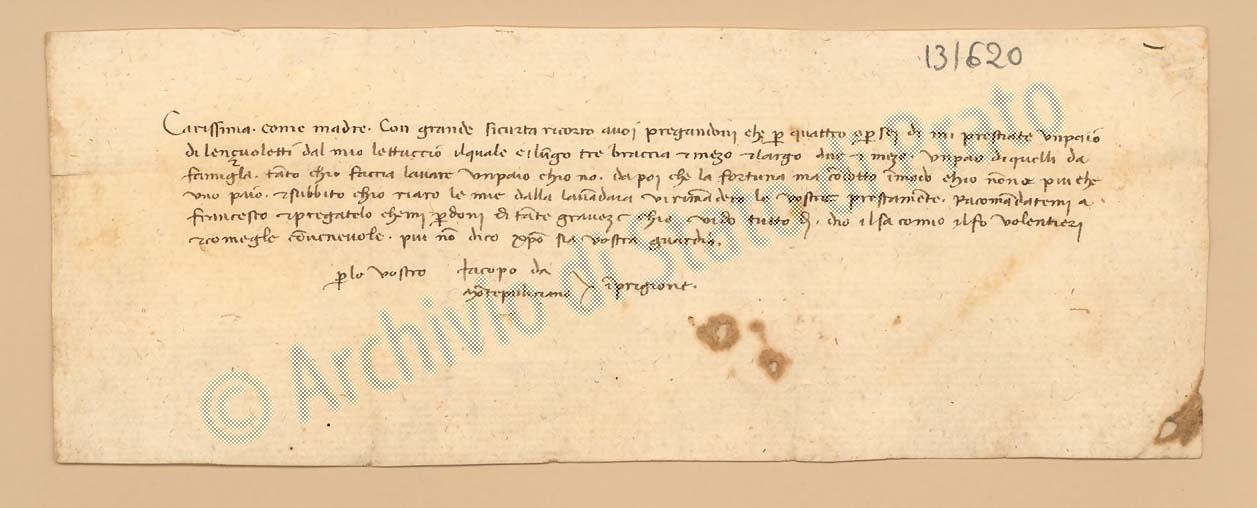 131620
Carissima come madre. Con grande sicurta ricorro a voi pregandovi che p quattro o p sei di mi prestiate un paio
di lenzuoletti dal mio lettuccio il quale e lūgo tre braccia e mezo e largo due e mezo. Un paio di quelli da
famigla. tāto chio faccia lavare un paio chio no. da poi che la fortuna ma cōdotto ī modo chio nōno piu che
uno paio. e subbito chio riaro le mie dalla lavādaia vi rimādero le vostre prestamēte. Racomādatemi a
Francesco e pregatelo che mi p doni di tāte graveze chio vi do tutto di. dio il sa comio il fo volentieri
e come gle cōvenevole. piu nō dico xpō sia vostra guardia.
p lo vostro Iacopo da
Mōtepulciano ī prigione.
© Archivio di Stato di Prato